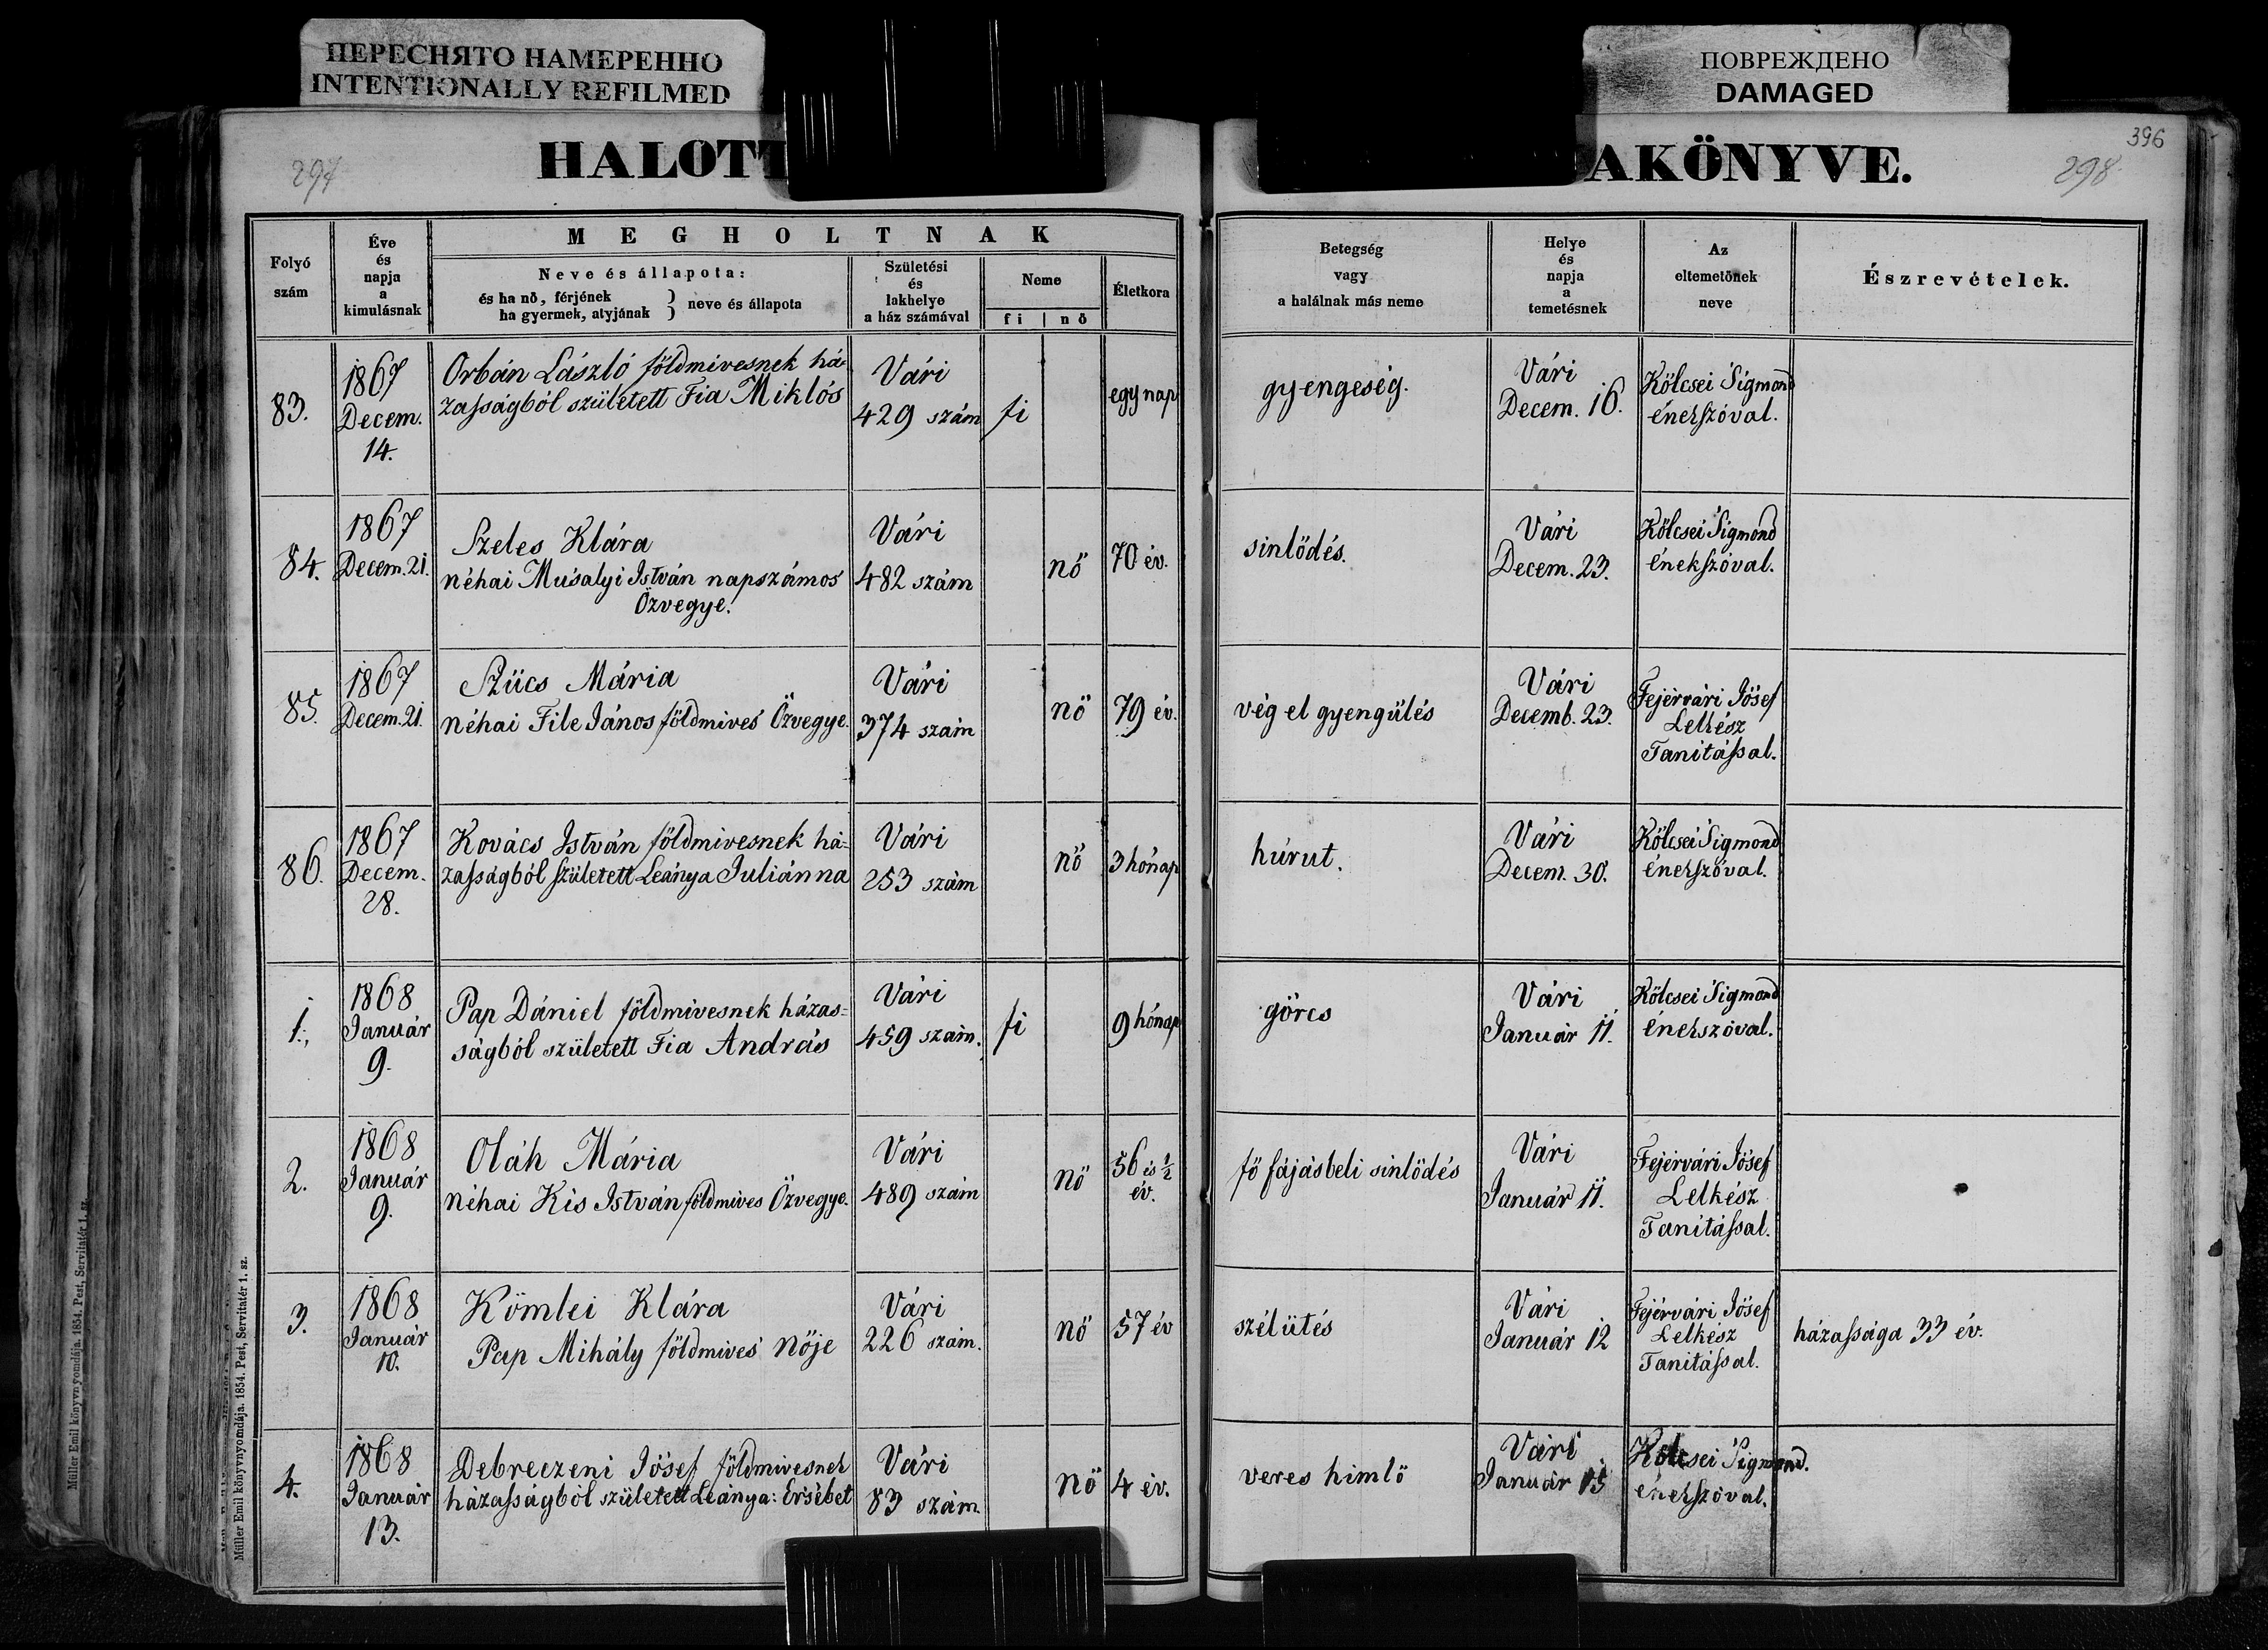 ПЕРЕСНЯТО НАМЕРЕННО
INTENTIONALLY REFILMED
ПОВРЕЖДЕНО
DAMAGED
396
297
HALOTT
AKÖNYVE.
298
Folyó
szám
Éve
és
napja
a
kimulásnak
MEGHOLTNAK
Neve és állapota:
és ha nő, férjének
ha gyermek, atyjának } neve és állapota
Születési
és
lakhelye
a ház számával
Neme
fi | nő
Életkora
Betegség
vagy
a halálnak más neme
Helye
és
napja
a
temetésnek
Az
eltemetőnek
neve
Észrevételek.
83.
1867
Decem.
14.
Orbán László földmivesnek há-
zasságból született Fia Miklós
Vári
429 szám
fi
egy nap
gyengeség.
Vári
Decem. 16.
Kölcsei Sigmond
énekszóval.
84.
1867
Decem. 21.
Szeles Klára
néhai Musalyi István napszámos
Özvegye.
Vári
482 szám
nő
70 év.
sinlődés.
Vári
Decem. 23.
Kölcsei Sigmond
énekszóval.
85.
1867
Decem. 21.
Szücs Mária
néhai File János földmives Özvegye.
Vári
374 szám
nő
79 év.
vég el gyengülés
Vári
Decemb. 23.
Fejérvári Jósef
Lelkész
Tanitással.
86.
1867
Decem.
28.
Kovács István földmivesnek há-
zasságból született Leánya Juliánna
Vári
253 szám
nő
3 hónap
húrut.
Vári
Decem. 30.
Kölcsei Sigmond
énekszóval.
1.
1868
Január
9.
Pap Dániel földmivesnek házas-
ságból született Fia András
Vári
459 szám.
fi
9 hónap
görcs
Vári
Január 11.
Kölcsei Sigmond
énekszóval.
2.
1868
Január
9.
Oláh Mária
néhai Kis István földmives Özvegye.
Vári
489 szám
nő
56 és ½
év.
fő fájásbeli sinlődés
Vári
Január 11.
Fejérvári Jósef
Lelkész
Tanitással.
3.
1868
Január
10.
Kömlei Klára
Pap Mihály földmives Nője
Vári
226 szám.
nő
57 év
szélütés
Vári
Január 12
Fejérvári Jósef
Lelkész
Tanitással.
házassága 33 év.
4.
1868
Január
13.
Debreczeni Jósef földmivesnek
házasságból született Leánya: Ersébet
Vári
83 szám.
nő
4 év.
veres himlő
Vári
Január 15
Kölcsei Sigmond.
énekszóval.
Müller Emil könyvnyomdája. 1854. Pest, Servitatér 1. sz.
Müller Emil könyvnyomdája. 1854. Pest, Servitatér 1. sz.